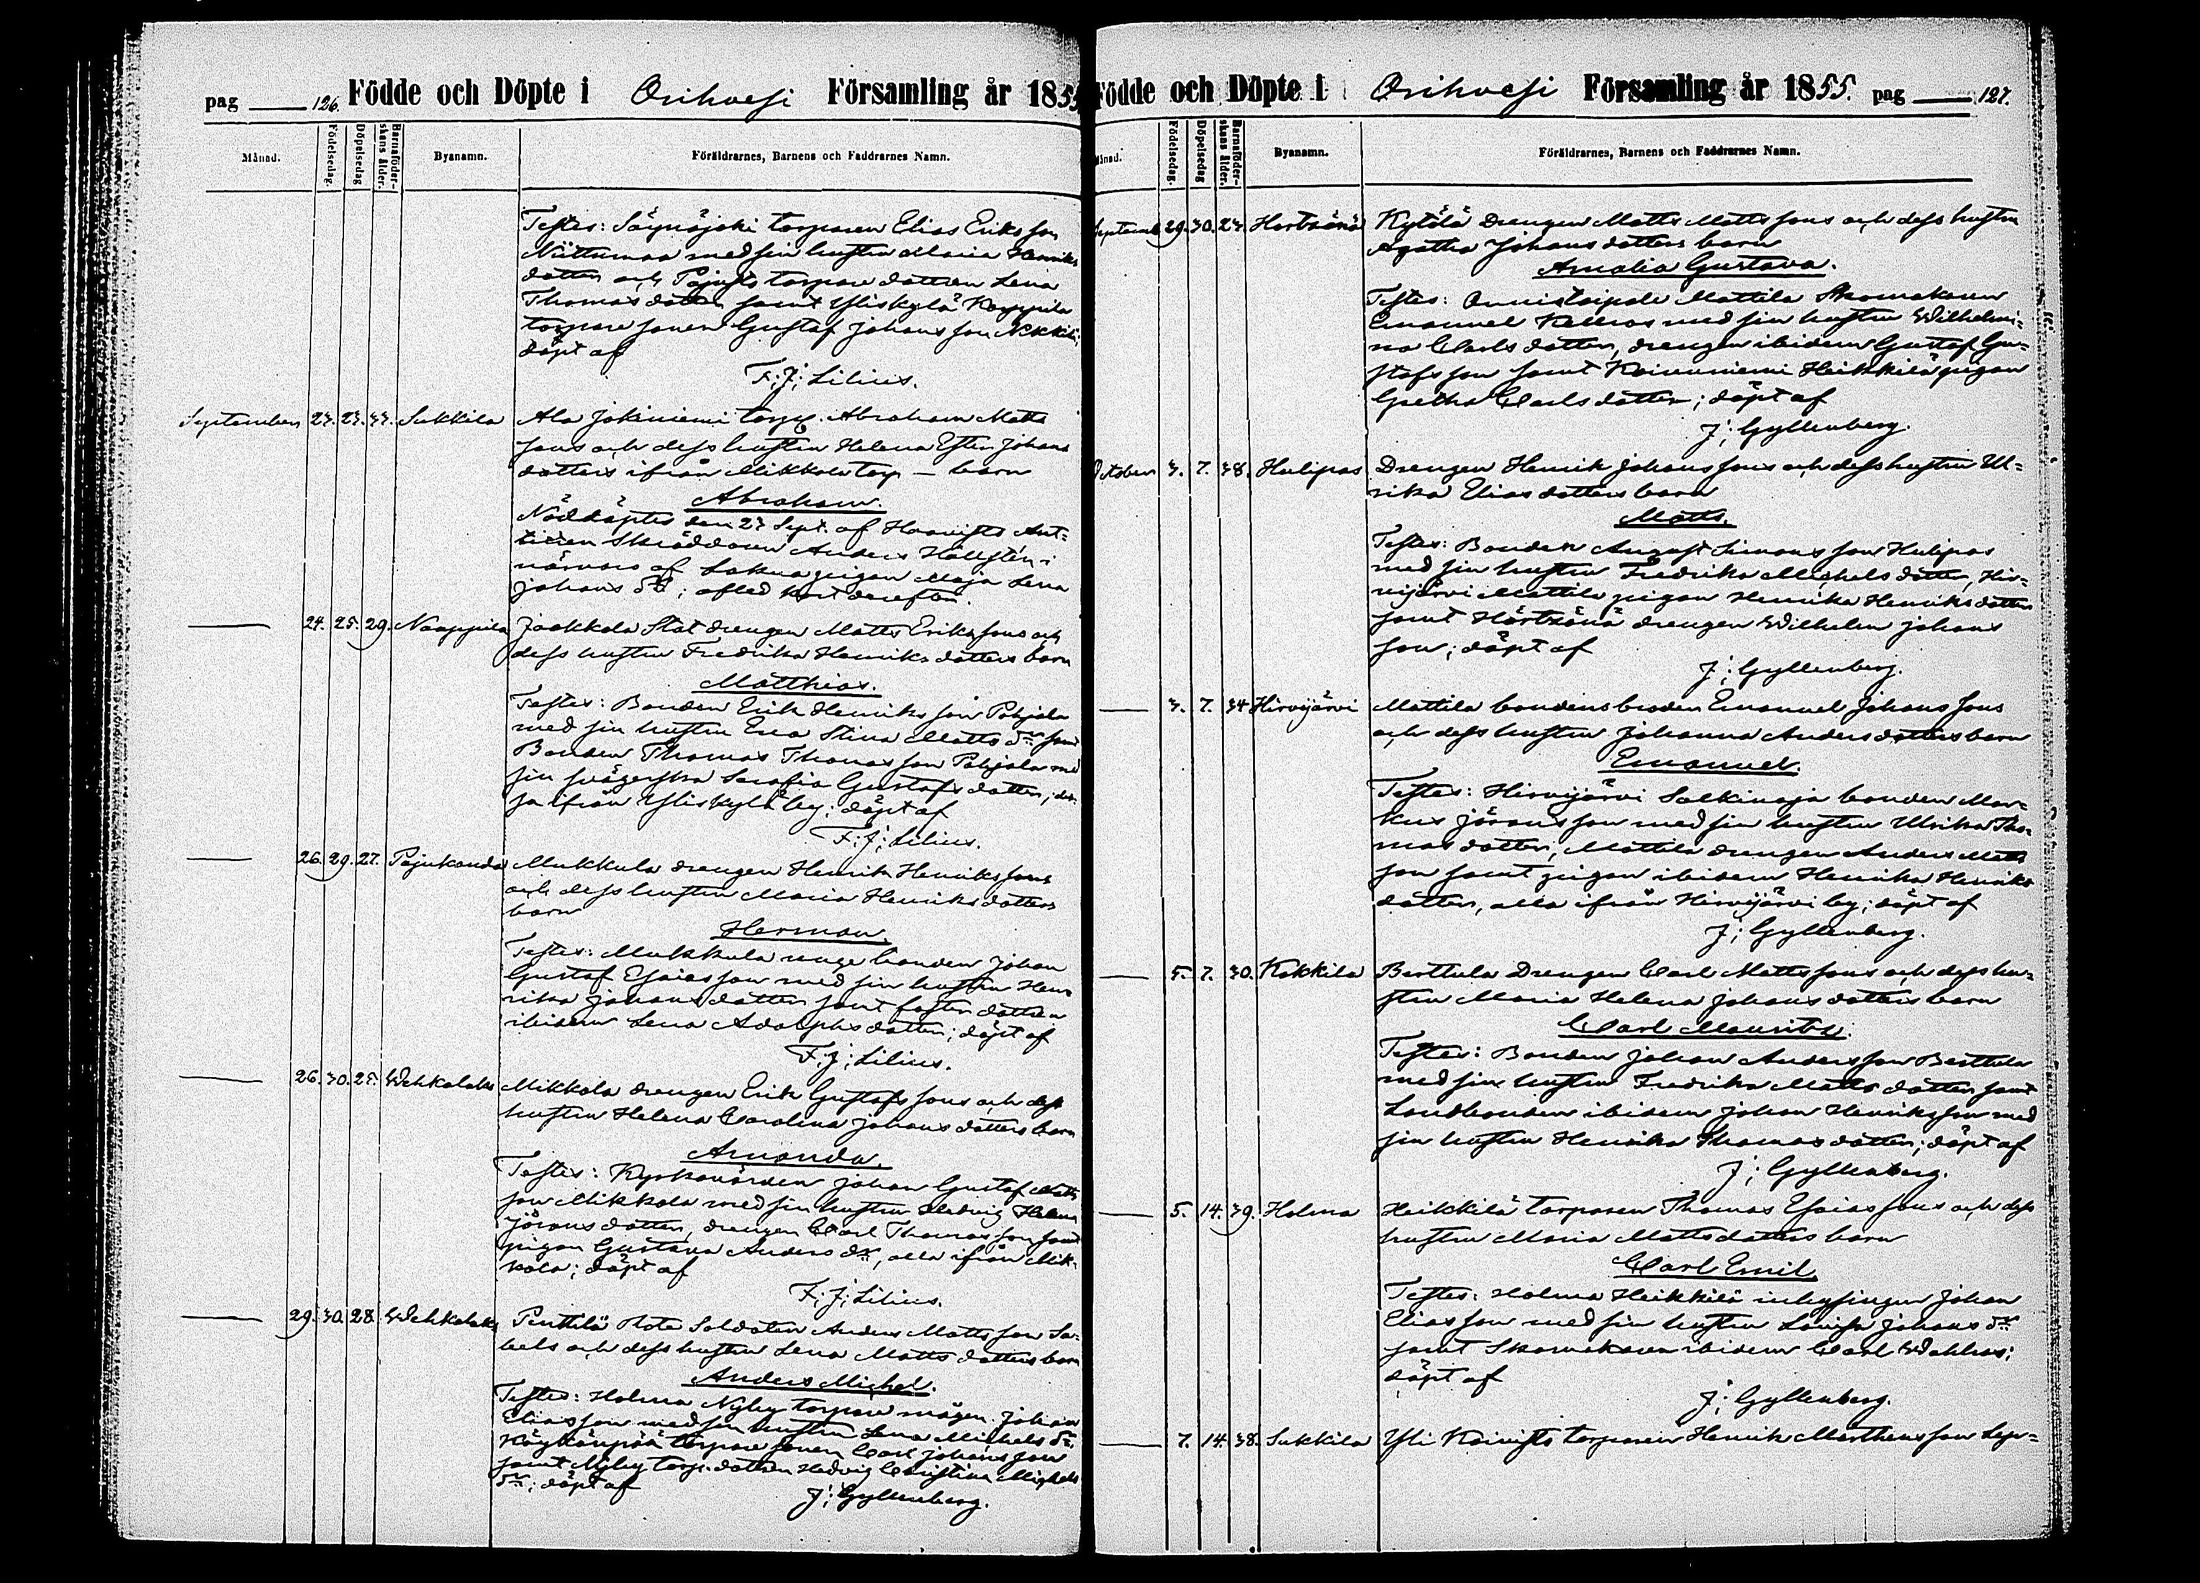 pag 126. Födde och Döpte i Orihvesi Församling år 1855
Månad. Födelsedag. Döpelsedag Barnaföderskans ålder. Byanamn. Föräldrarnes, Barnens och Faddrarnes Namn.
Testes: Säynäjoki torparen Elias Eriks son
Niittumaa med sin hustru Maria Henriks
dotter och torpare dottren Lena
Thomas dotter samt Yliskylä Kauppila
torpare sonen Gustaf Johans son
döpt af
F: J: Lilius.
September 23. 23. 33. Sukkila Ala Jokiniemi torp. Abraham Matts
sons och dess hustru Helena Johans
dotters ifrån Mikkola torp — barn
Abraham.
Nöddöptes den 23 Sept. af Anttilan Skräddaren Anders Hällstén i
närvaro af pigan Maja Lena
Johans dr; afled kort derefter.
— 24. 25. 29. Naappila Jaakkola Stat drengen Matts Eriks sons och
dess hustru Fredrika Henriks dotters barn
Matthias.
Testes: Bonden Erik Henriks son Pohjola
med sin hustru Eva Stina Matts dr samt
Bonden Thomas Thomas son Pohjola med
sin svägerska Serafia Gustafs dotter, des-
sa ifrån Yliskylä by; döpt af
F: J: Lilius.
— 26. 29. 27. Pajukanda Mukkula drengen Henrik Henriks sons
och dess hustru Maria Henriks dotters
barn
Herman.
Testes: Mukkula unge bonden Johan
Gustaf Esaias son med sin hustru Hen-
rika Johans dotter samt faster dottren
ibidem Lena Adolphs dotter; döpt af
F: J: Lilius.
— 26. 30. 25. Wehkalaks Mikkola drengen Erik Gustafs sons och dess
hustru Helena Carolina Johans dotters barn
Amanda.
Testes: Kyrkovärden Johan Gustaf Matts
son Mikkola med sin hustru Hedvig Helena
Jörans dotter, drengen Carl Thomas son samt
pigan Gustava Anders dr, alla ifrån Mik-
kola; döpt af
F: J: Lilius.
— 29. 30. 28. Wehkalaks Penttilä Rote Soldaten Anders Matts son Sa-
bels och dess hustru Lena Matts dotters barn
Anders Michel.
Testes: Holma Nyby torpare mågen Johan
Elias son med sin hustru Lena Michels dr
torpare sonen Carl Johans son
samt Nyby torp. dottren Hedvig Christina Michels
dr; döpt af
J: Gyllenberg.
Födde och Döpte i Orihvesi Församling år 1855. pag 127.
Månad. Födelsedag. Döpelsedag Barnaföderskans ålder. Byanamn. Föräldrarnes, Barnens och Faddrarnes Namn.
September 29. 30. 23. Hortsänä Kytölä Drengen Matts Matts sons och dess hustru
Agatha Johans dotters barn
Amalia Gustava.
Testes: Onnistaipale Mattila Skomakaren
Emanuel Kellros med sin hustru Wilhelmi-
na Carls dotter, drengen ibidem Gustaf Gu-
stafs son samt Koivuniemi Heikkilä pigan
Gretha Carls dotter; döpt af
J: Gyllenberg.
October 3. 7. 38. Hulipas Drengen Henrik Johans sons och dess hustru Ul-
rika Elias dotters barn
Matts.
Testes: Bonden August Simons son Hulipas
med sin hustru Fredrika Michels dotter, Hir-
vijärvi Mattila pigan Henrika Henriks dotter
samt Hörtsänä drengen Wilhelm Johans
son; döpt af
J: Gyllenberg.
— 3. 7. 34 Hirvijärvi Mattila bondens broder Emanuel Johans sons
och dess hustru Johanna Anders dotters barn
Emanuel.
Testes: Hirvijärvi Salkinoja bonden Mar-
kus Jörans son med sin hustru Ulrika Tho-
mas dotter, Mattila drengen Anders Matts
son samt pigan ibidem Henrika Henriks
dotter, alla ifrån Hirvijärvi by; döpt af
J: Gyllenberg.
— 5. 7. 30. Kokkila Berttula Drengen Carl Matts sons och dess hu-
stru Maria Helena Johans dotters barn
Carl Mauritz.
Testes: Bonden Johan Anders son Berttula
med sin hustru Fredrika Matts dotter samt
Landbonden ibidem Johan Henriks son med
sin hustru Henrika Thomas dotter; döpt af
J: Gyllenberg.
— 5. 14. 39. Holma Heikkilä torparen Thomas Esaias sons och dess
hustru Maria Matts dotters barn
Carl Emil.
Testes: Holma Heikkilä inhysingen Johan
Elias son med sin hustru Lovisa Johans dr
samt Skomakaren ibidem Carl Wahlros;
döpt af
J: Gyllenberg.
— 7. 14. 38. Sukkila Yli Koivisto torparen Henrik Mårthens son Lep-